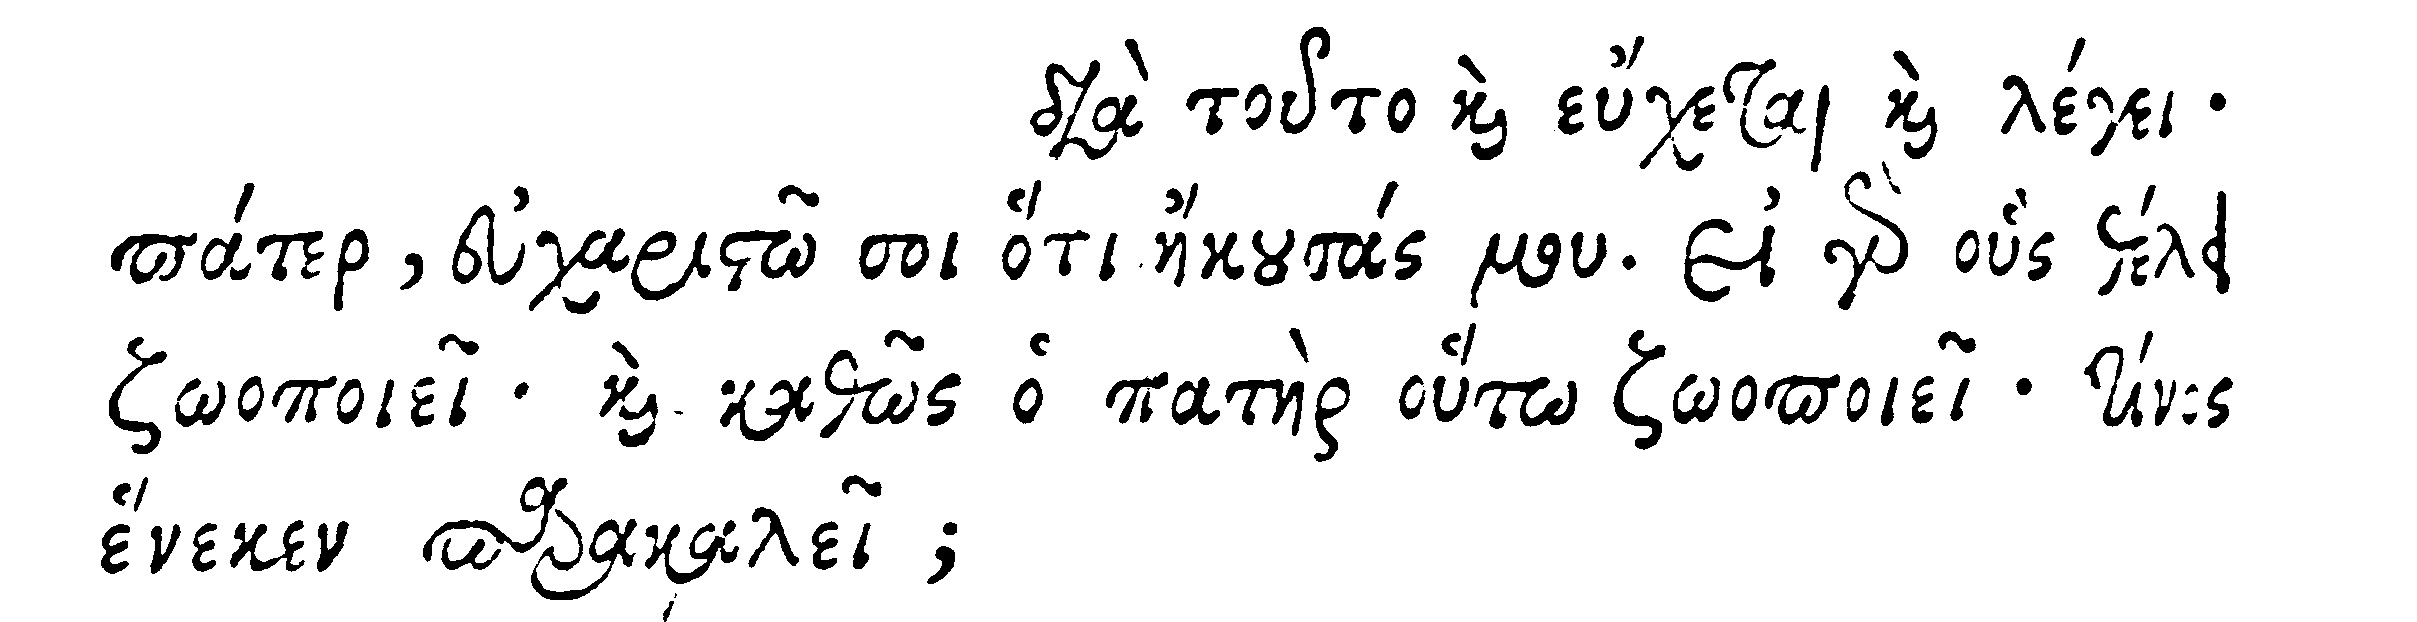 διὰ τοῦτο καὶ εὔχεται καὶ λέγει·
πάτερ, εὐχαριστῶ σοι ὅτι ἤκουσάς μου. Εἰ γὰρ οὓς θέλει
ζωοποιεῖ· καὶ καθὼς ὁ πατὴρ οὕτω ζωοποιεῖ· τίνος
ἕνεκεν παρακαλεῖ;